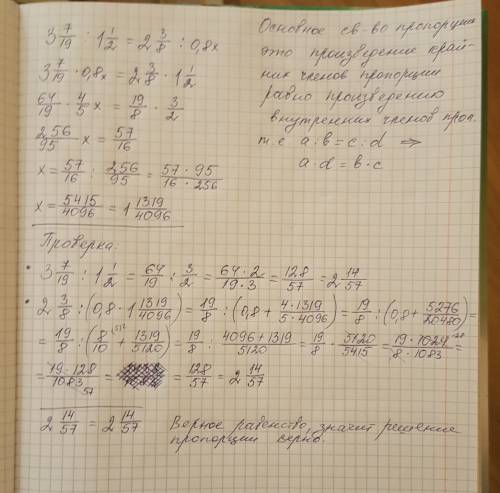 3 7/19 : 1 1/2 = 2 3/8 : 0,8x
3 7/19 · 0,8x = 2 3/8 · 1 1/2
64/19 · 4/5 x = 19/8 · 3/2
256/95 · x = 57/16
x = 57/16 : 256/95 = 57 · 95/16 · 256
x = 5415/4096 = 1 1319/4096
Основное св-во пропорции
это произведение край-
них членов пропорции
равно произведению
внутренних членов проп.
т.е a : b = c : d ⇒
a · d = b · c
Проверка:
• 3 7/19 : 1 1/2 = 64/19 : 3/2 = 64 · 2/19 · 3 = 128/57 = 2 14/57
• 2 3/8 : (0,8 · 1 1319/4096) = 19/8 : (0,8 + 4 · 1319/5 · 4096) = 19/8 : (0,8 + 5276/20480) =
= 19/8 : (8/10 + 1319/5120) = 19/8 : 4096 + 1319/5120 = 19/8 · 5120/5415 = 19 · 1024/8 · 1083 =
= 19 · 128/1083 = 128/57 = 2 14/57
2 14/57 = 2 14/57
Верное равенство, значит решение
пропорции верно.